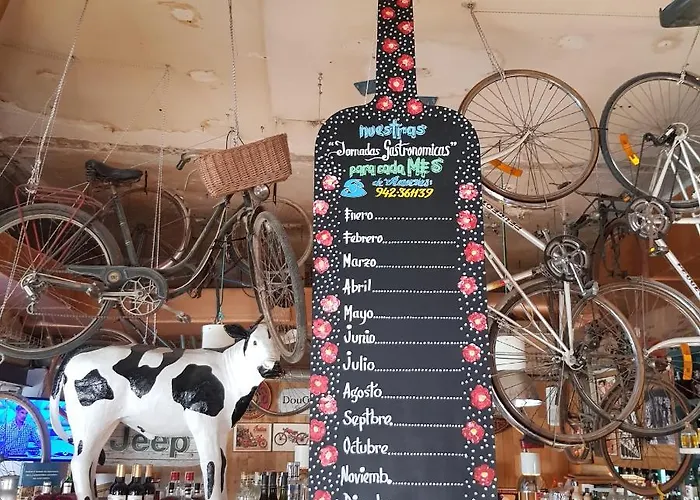 nuestras
"Jornadas Gastronomicas"
para cada MES
de Reservas
942-361139
Enero
Febrero
Marzo
Abril
Mayo
Junio
Julio
Agosto
Septbre
Octubre
Noviemb.
Jeep
DouG